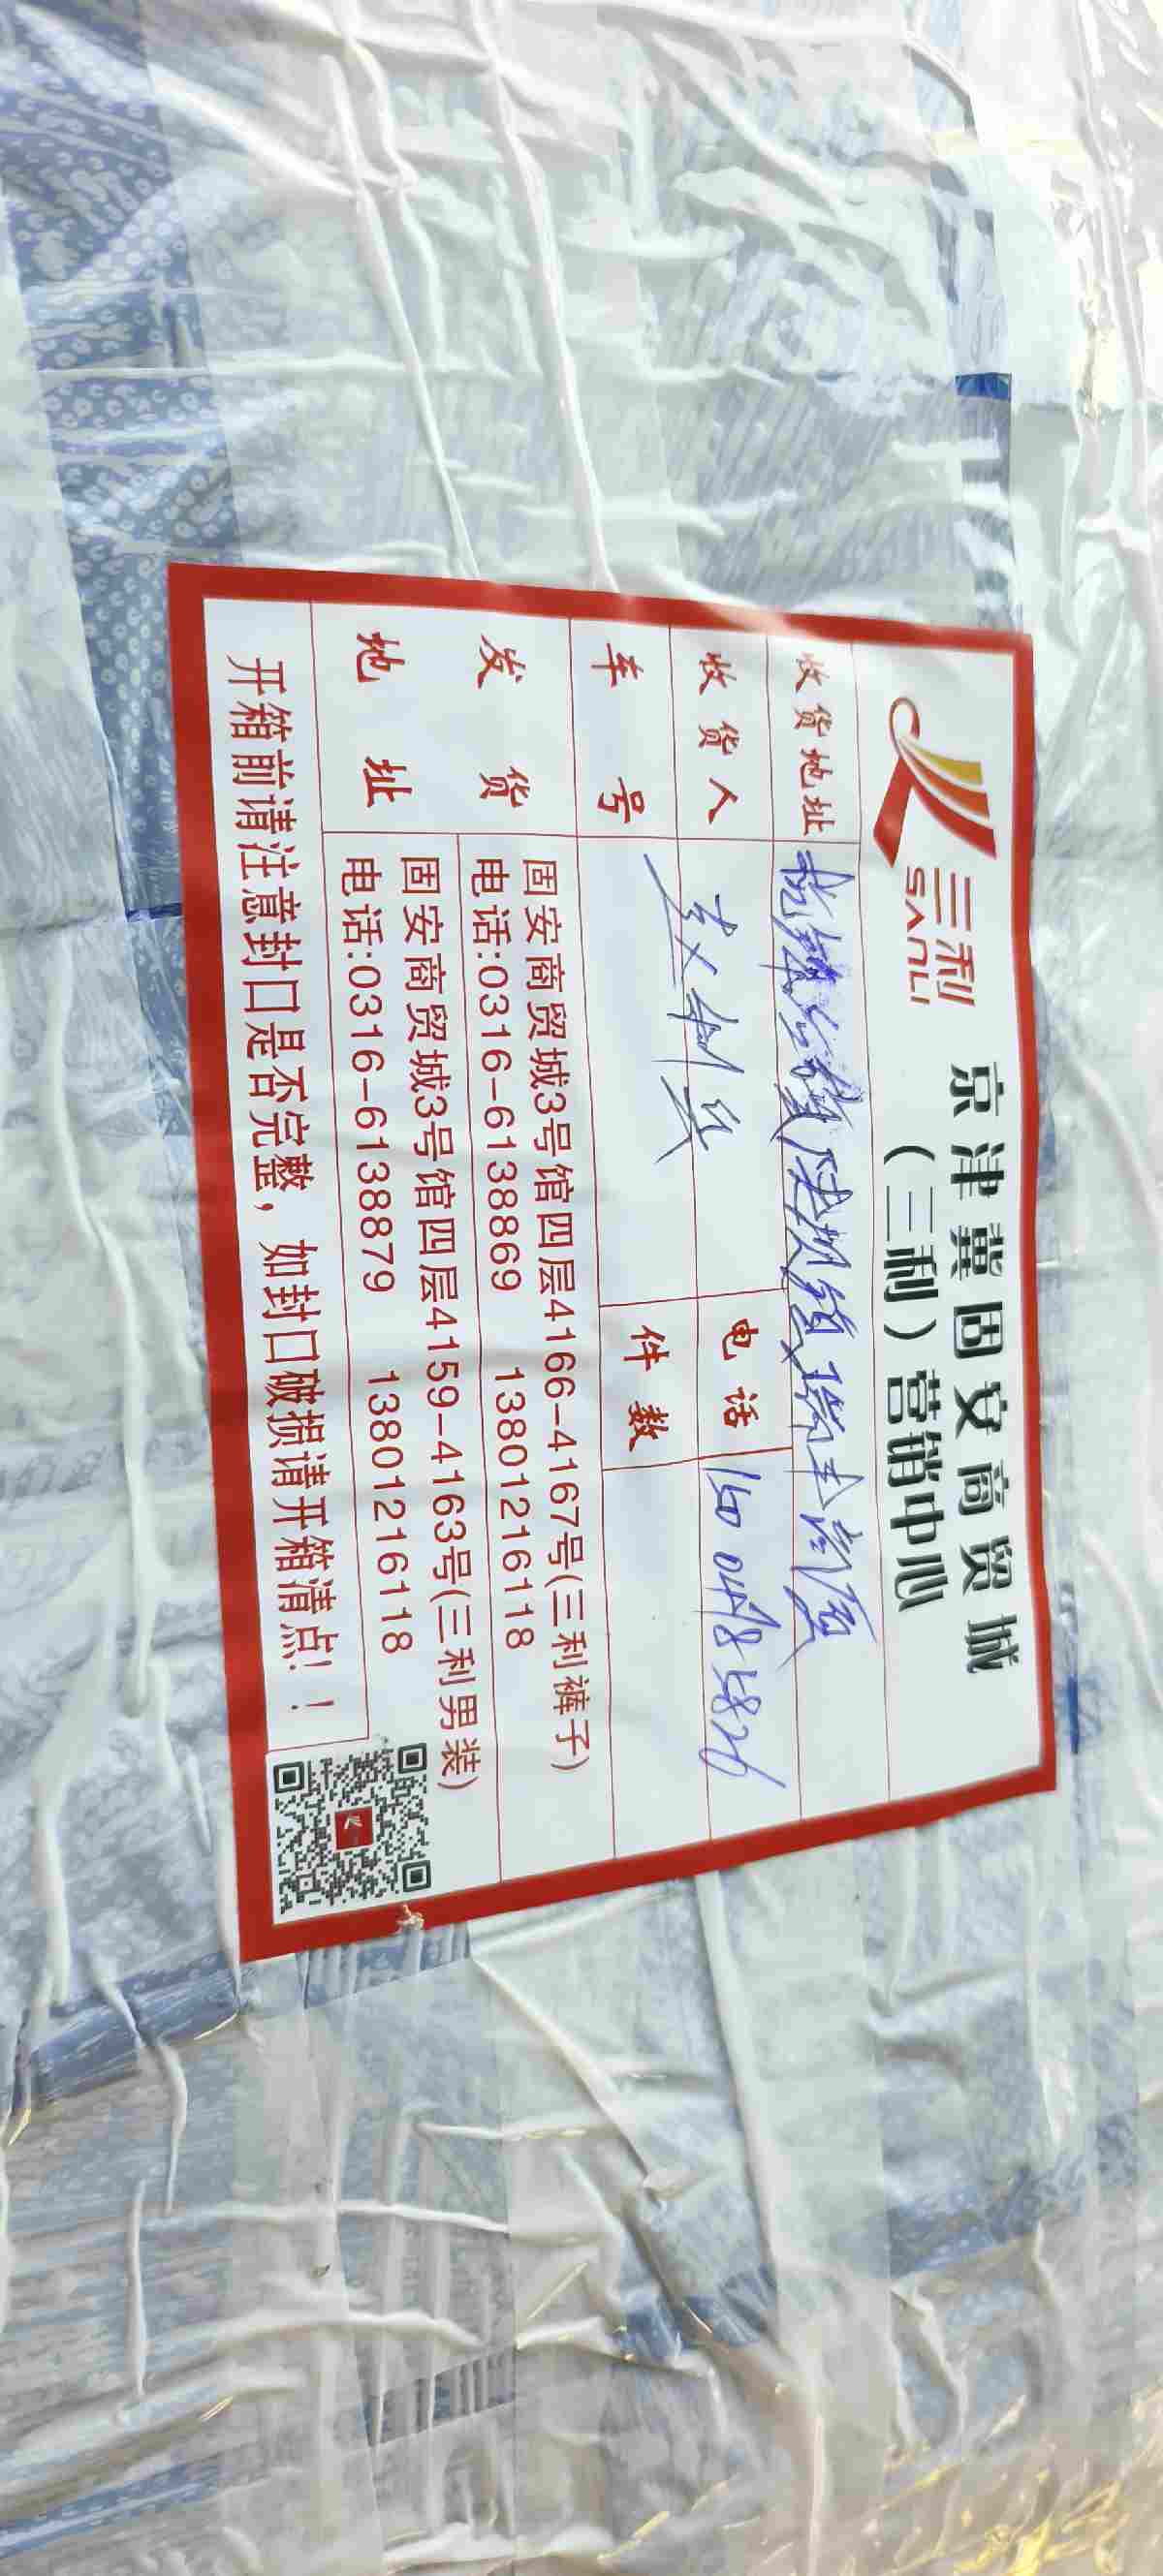 三利
SANLI
京津冀固安商贸城
(三利)营销中心
收货地址
收货人
电话 150 0478 5826
车号
件数
发货地址
固安商贸城3号馆四层4166-4167号(三利裤子)
电话:0316-6138869 13801216118
固安商贸城3号馆四层4159-4163号(三利男装)
电话:0316-6138879 13801216118
开箱前请注意封口是否完整，如封口破损请开箱清点！！